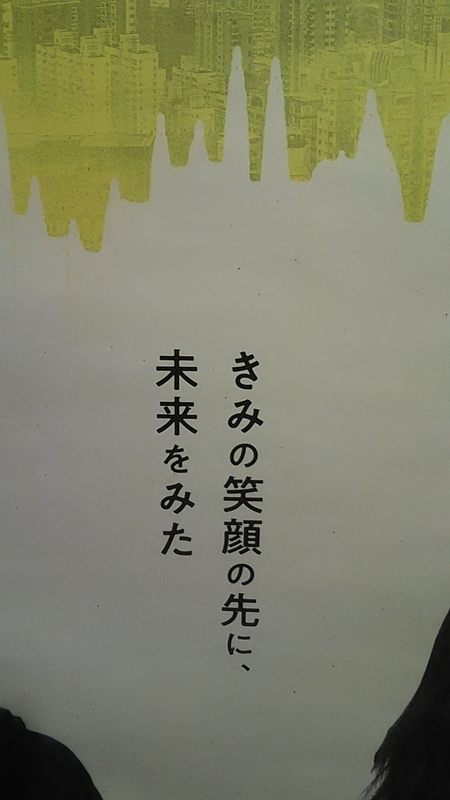 きみの笑顔の先に、
未来をみた